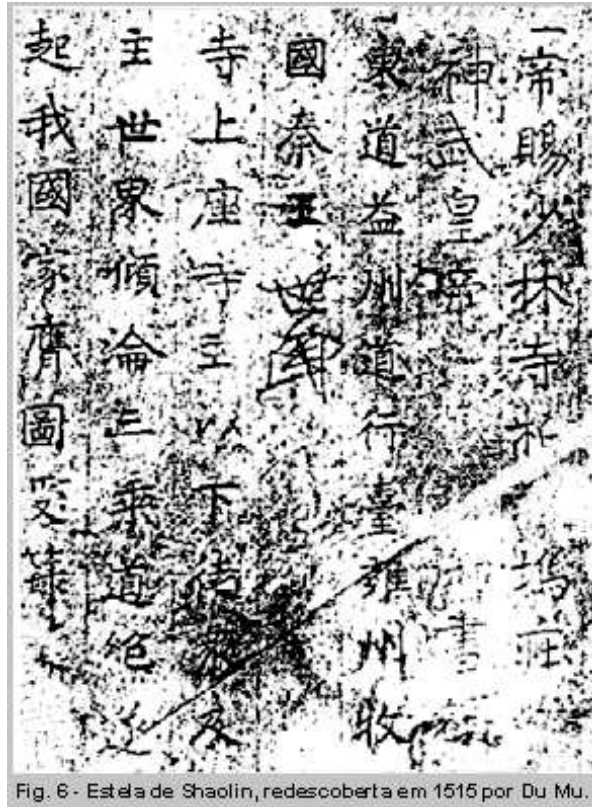 帝賜少林寺柏塢莊
神武皇帝書
東道益州道行臺雍州牧
國秦王世民
寺上座寺主以下徒眾及
主世界傾淪三乘道絕
起我國家膺圖受籙
Fig. 6 - Estela de Shaolin, redescoberta em 1515 por Du Mu.